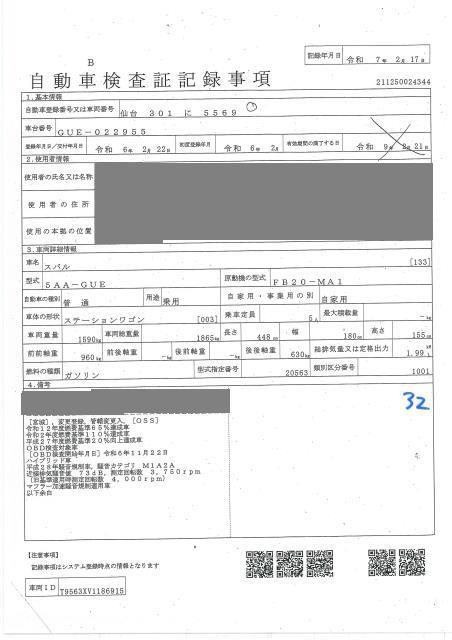 記録年月日 令和 7年 2月 17日
B
自動車検査証記録事項
211250024344
1.基本情報
自動車登録番号又は車両番号 仙台 301 に 5569
車台番号 GUE-022955
登録年月日/交付年月日 令和 6年 2月 22日 初度登録年月 令和 6年 2月 有効期間の満了する日 令和 9年 2月 21日
2.使用者情報
使用者の氏名又は名称
使用者の住所
使用の本拠の位置
3.車両詳細情報
車名 スバル [133]
型式 5AA-GUE 原動機の型式 FB20-MA1
自動車の種別 普通 用途 乗用 自家用・事業用の別 自家用
車体の形状 ステーションワゴン [003] 乗車定員 5人 最大積載量 -kg
車両重量 1590kg 車両総重量 1865kg 長さ 448cm 幅 180cm 高さ 155cm
前前軸重 960kg 前後軸重 -kg 後前軸重 -kg 後後軸重 630kg 総排気量又は定格出力 1.99L
燃料の種類 ガソリン 型式指定番号 20563 類別区分番号 1001
4.備考
32
[宮城],変更登録,管轄変更入,[OSS]
令和12年度燃費基準65%達成車
令和2年度燃費基準110%達成車
平成27年度燃費基準20%向上達成車
OBD検査対象車
[OBD検査開始年月日]令和6年11月22日
ハイブリッド車
平成28年騒音規制車,騒音カテゴリ M1A2A
近接排気騒音値 73dB,測定回転数 3,750rpm
(旧基準適用時測定回転数 4,000rpm)
マフラー加速騒音規制適用車
以下余白
【注意事項】
記録事項はシステム登録時点の情報となります
車両ID T9563XV1186915